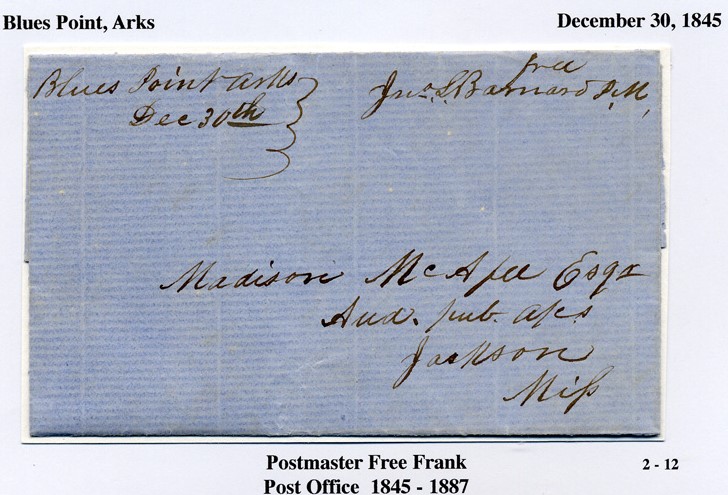 Blues Point, Arks
December 30, 1845
Blues Point Arks
Dec 30th
free
Jno. S. Barnard P.M.
Madison McAfee Esqr
Aud. pub. a/cs
Jackson
Miſs
Postmaster Free Frank
2 - 12
Post Office 1845 - 1887